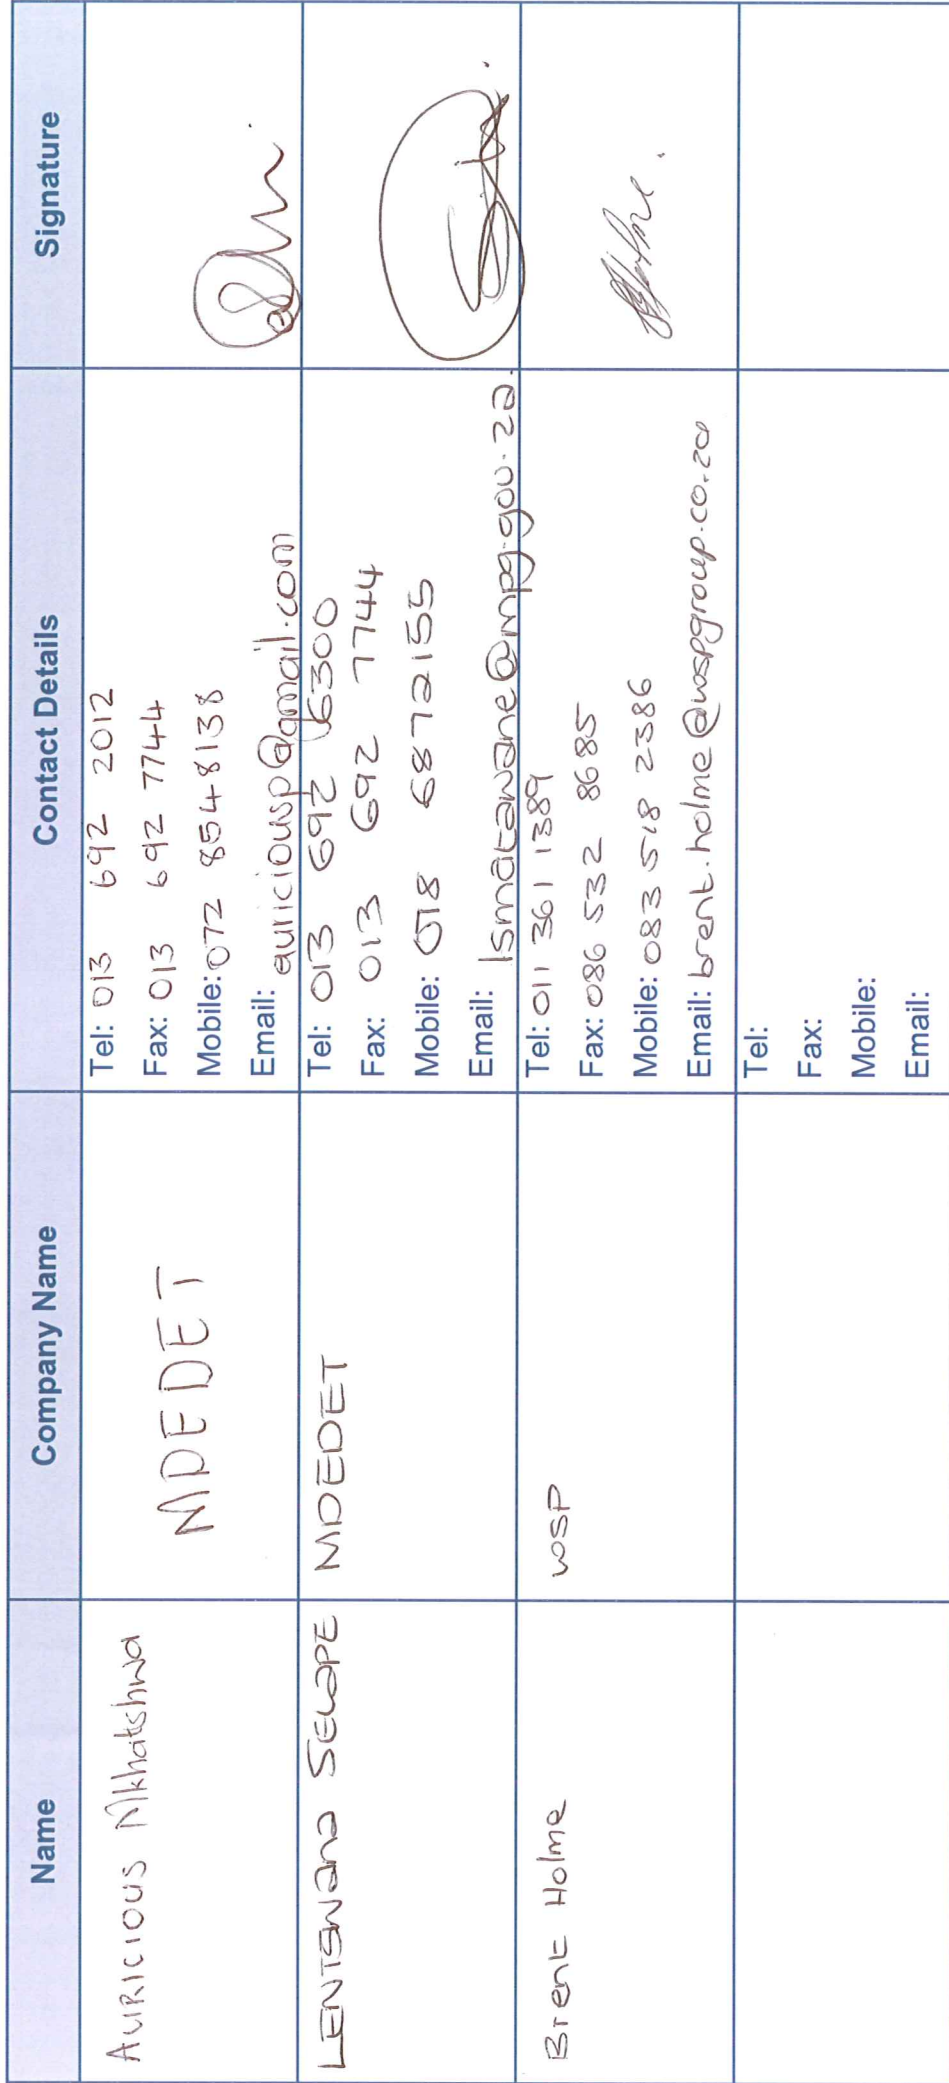 Name Company Name Contact Details Signature
Auricious Mkhatshwa
MDEDET
Tel: 013 692 2012
Fax: 013 692 7744
Mobile: 072 8548138
Email: auriciousp@gmail.com
LENTSWana SELOPE
MDEDET
Tel: 013 692 6300
Fax: 013 692 7744
Mobile: 018 6872155
Email: lsmatawane@mpg.gov.za
Brent Holme
WSP
Tel: 011 361 1389
Fax: 086 532 8685
Mobile: 083 518 2386
Email: brent.holme@wspgroup.co.za
Tel:
Fax:
Mobile:
Email: